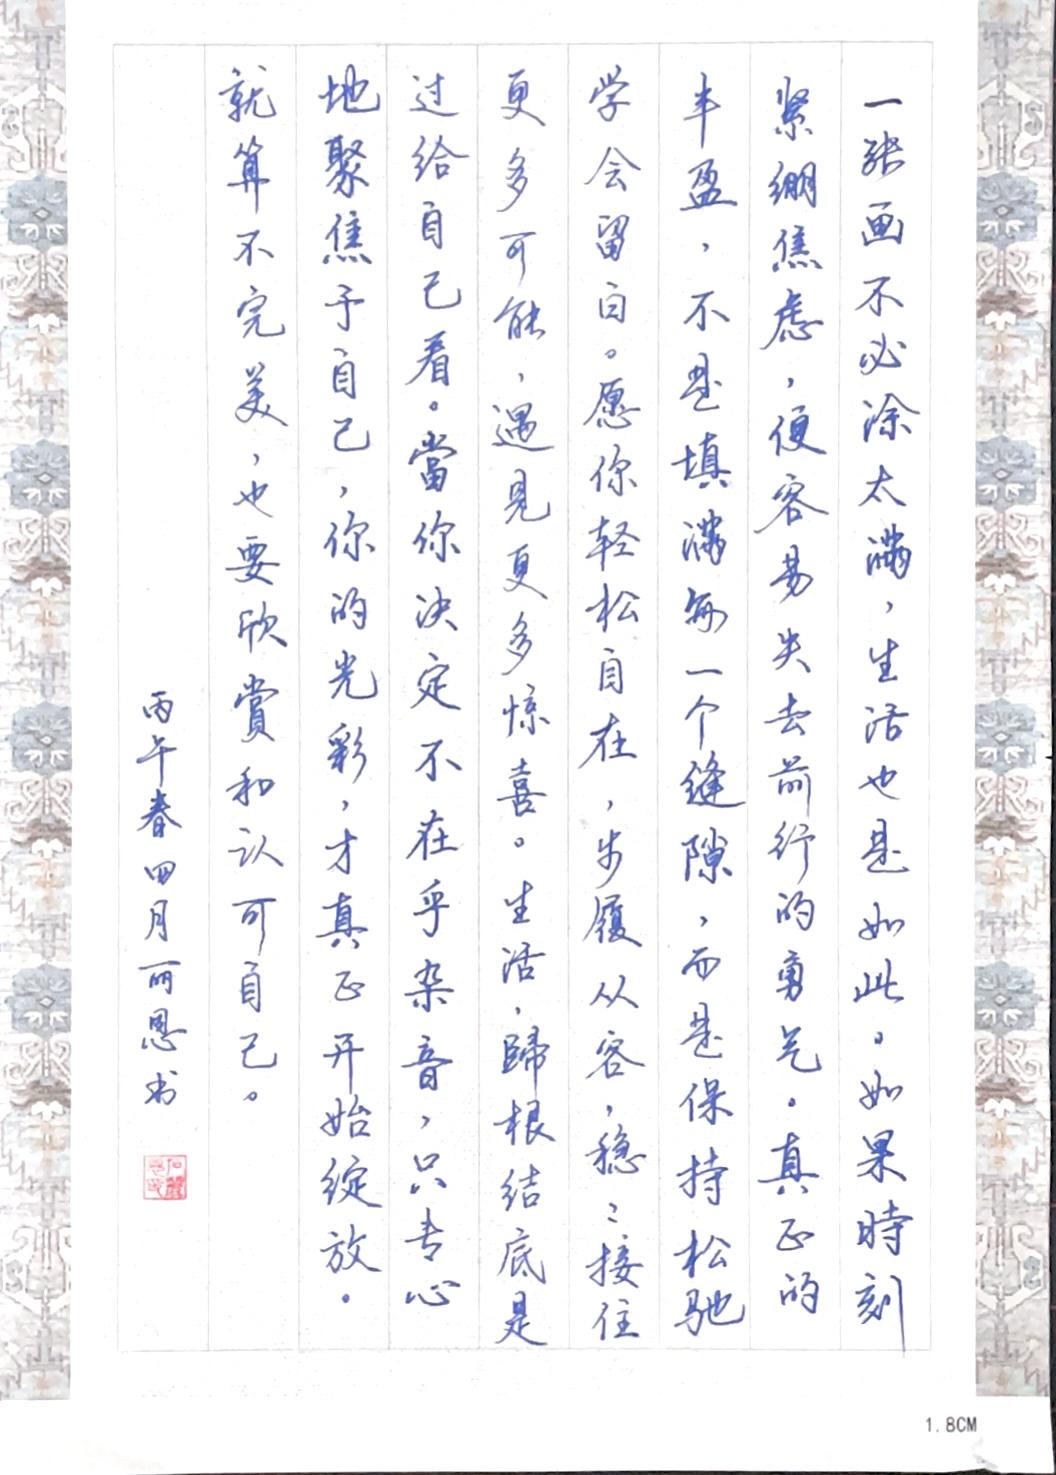 一张画不必涂太满，生活也是如此。如果時刻
紧绷焦虑，便容易失去前行的勇气。真正的
丰盈，不是填满每一个缝隙，而是保持松驰
学会留白。愿你轻松自在，步履从容，稳〻接住
更多可能，遇见更多惊喜。生活，歸根结底是
过给自己看。當你决定不在乎杂音，只专心
地聚焦予自己，你的光彩，才真正开始绽放。
就算不完美，也要欣赏和认可自己。
丙午春四月丽恩书
1.8CM